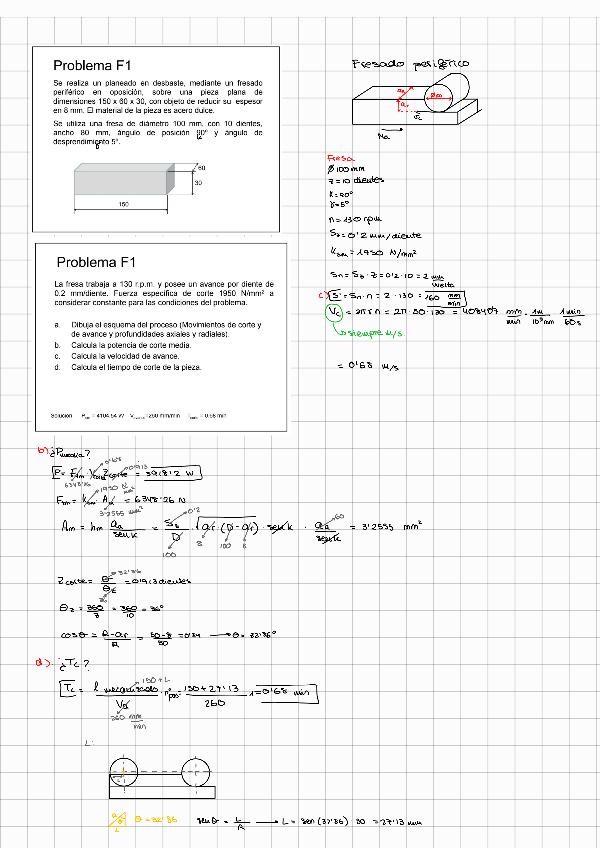 Problema F1
Se realiza un planeado en desbaste, mediante un fresado
periférico en oposición, sobre una pieza plana de
dimensiones 150 x 60 x 30, con objeto de reducir su espesor
en 8 mm. El material de la pieza es acero dulce.
Se utiliza una fresa de diámetro 100 mm, con 10 dientes,
ancho 80 mm, ángulo de posición 90º y ángulo de
desprendimiento 5º.
60
30
150
Problema F1
La fresa trabaja a 130 r.p.m. y posee un avance por diente de
0.2 mm/diente. Fuerza específica de corte 1950 N/mm² a
considerar constante para las condiciones del problema.
a. Dibuja el esquema del proceso (Movimientos de corte y
de avance y profundidades axiales y radiales).
b. Calcula la potencia de corte media.
c. Calcula la velocidad de avance.
d. Calcula el tiempo de corte de la pieza.
Solución = 4104.54 W =260 mm/min = 0.68 min
Fresado periférico
Fresa
Ø 100 mm
z = 10 dientes
K = 90º
γ = 5º
n = 130 rpm
Sz = 0'2 mm/diente
= 1950 N/mm²
Sn = Sz · z = 0'2 · 10 = 2 mm/vuelta
c) S' = Sn · n = 2 · 130 = 260 mm/min
Vc = 2πrn = 2π · 50 · 130 = 40840'7 mm/min · 1m/10³mm · 1min/60s
siempre m/s
= 0'68 m/s
b) ¿Pmedia?
0'68
0'913
6348'26
1950 N/mm²
= 6348'26 N
3'2555 mm²
Am = hm aa/senK = Sz/D · √ar·(D-ar) · senK · aa/senK = 3'2555 mm²
0'2
60
100 8 100 8
32'86
Zcorte = θ/θz = 0'913 dientes
θz = 360/z = 360/10 = 36º
cosθ = R-ar/R = 50-8/50 = 0'84 → θ = 32'86º
d) ¿Tc?
150 + L
Tc = l mecanizado · nºpas = 150+27'13/260 · 1 = 0'68 min
260 mm/min
L:
θ = 32'86 senθ = L/R → L = sen(32'86) · 50 = 27'13 mm